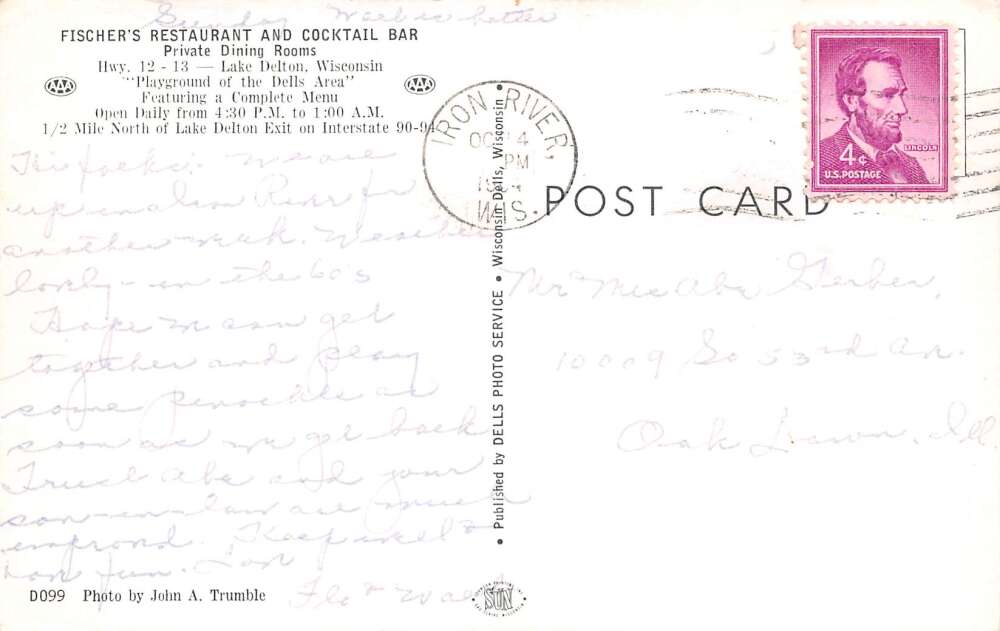 Sunday
FISCHER'S RESTAURANT AND COCKTAIL BAR
Private Dining Rooms
Hwy. 12 - 13 — Lake Delton, Wisconsin
"Playground of the Dells Area"
AAA
AAA
Featuring a Complete Menu
Open Daily from 4:30 P.M. to 1:00 A.M.
1/2 Mile North of Lake Delton Exit on Interstate 90-94
Hi folks: We are
up in Iron River for
another week. Weather
lovely - in the 60's
Hope we can get
together and play
some penochle as
soon as we get back
Trust Abe and your
son-in-law are much
improved. Keep well &
have fun. Love
Flo & Walt
D099 Photo by John A. Trumble
Published by DELLS PHOTO SERVICE • Wisconsin Dells, Wisconsin
SUN
IRON RIVER,
PM
WIS.
POST CARD
4¢
LINCOLN
U.S. POSTAGE
Mr Mrs Abe Gerber,
10009 So 53rd Av.
Oak Lawn, Ill.